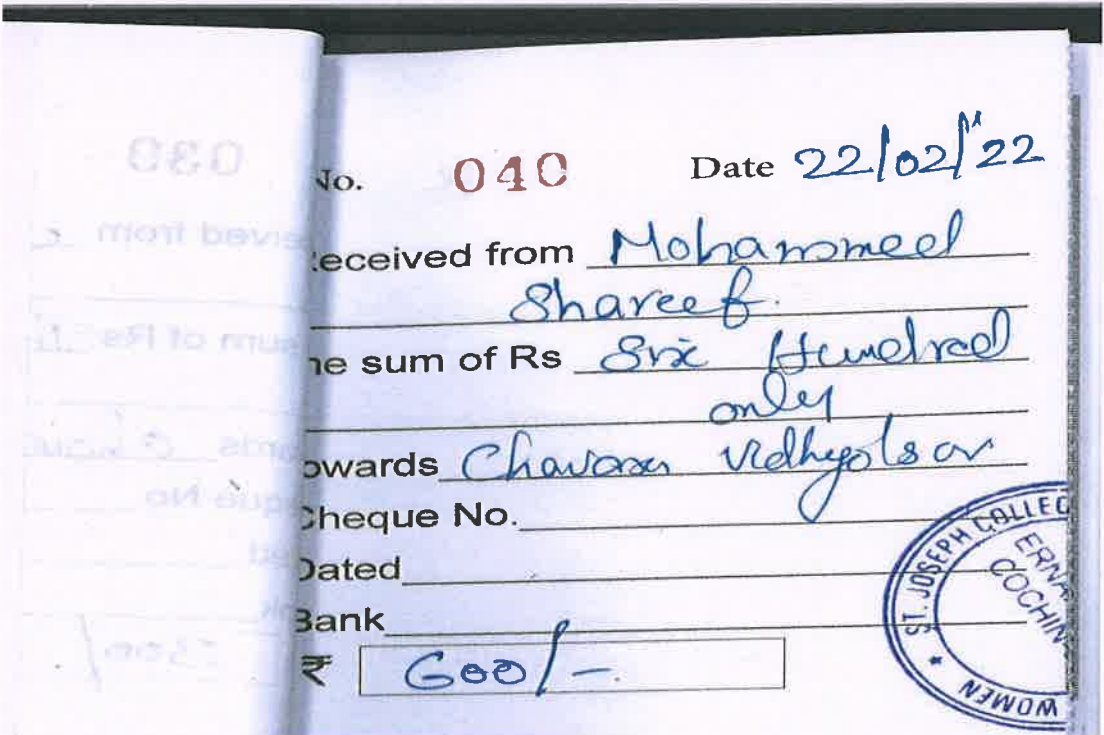 No. 040 Date 22/02/22
eceived from Mohammed
Shareef.
he sum of Rs Six Hundred
only
owards Chavara Vidhyotsav
Cheque No.
Dated
Bank
₹ 600/-
ST. JOSEPH COLLEG
ERNA
COCHIN
WOMEN